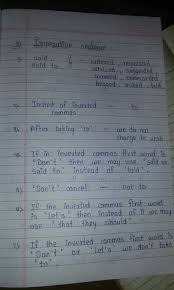 Imperative sentence :-
1) said } → ordered, requested
said to } advised, suggested,
warned, commanded
begged, asked, told.
2) Instead of inverted — to
commas
3) After taking 'to' — we do not
change in verb
4) If in inverted commas first word is
"Don't" then we may use 'said or
said to' instead of 'told'.
5) "Don't" cancel — not to
6) If the inverted commas first word
is "Let's" then instead of it we may
use 'that they should'.
7) If the inverted commas first word is
"Don't" or 'Let's' we don't take
'to'.